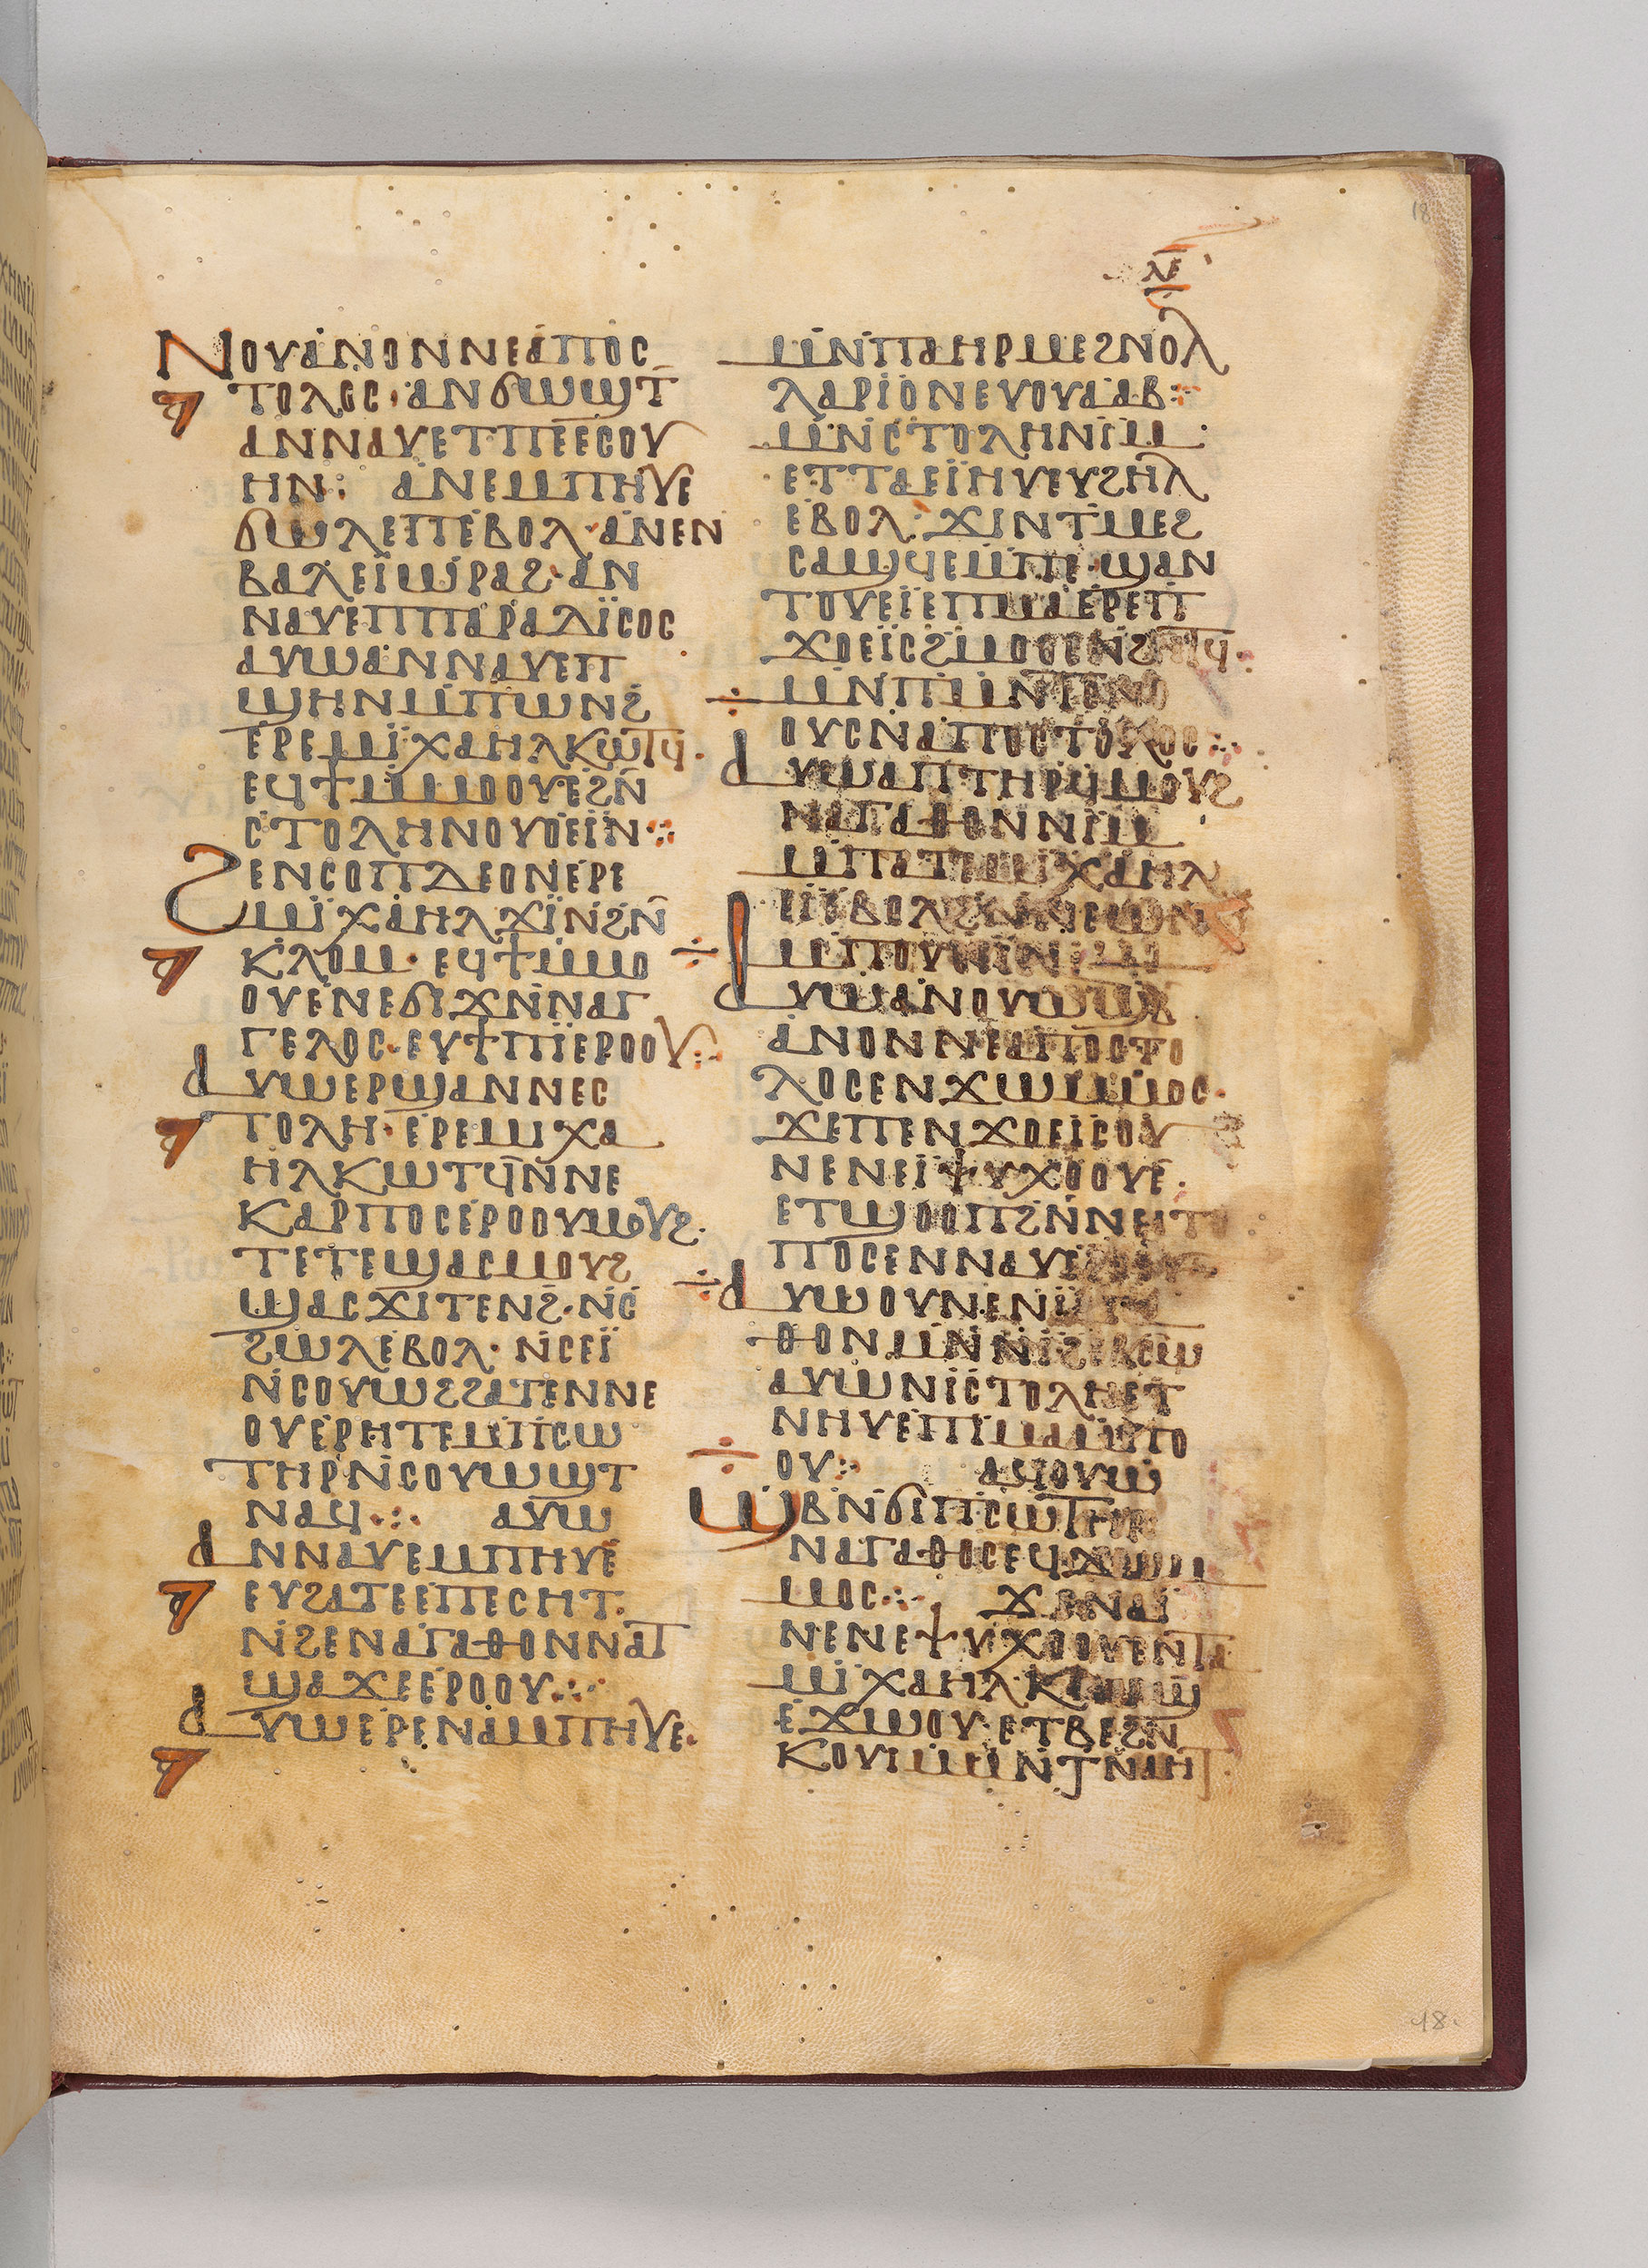 18
ⲗⲉ
ⲛⲟⲩⲁⲛⲟⲛⲛⲉⲁⲡⲟⲥ
ⲧⲟⲗⲟⲥ· ⲁⲛϭⲱϣⲧ
ⲁⲛⲛⲁⲩⲉⲧⲡⲉⲉⲥⲟⲩ
ⲏⲛ: ⲁⲛⲉⲙⲡⲏⲩⲉ
ϭⲱⲗⲉⲡⲉⲃⲟⲗ· ⲁⲛⲉⲛ
ⲃⲁⲗⲉⲓⲱⲣⲁϩ· ⲁⲛ
ⲛⲁⲩⲉⲡⲡⲁⲣⲁⲇⲓⲥⲟⲥ
ⲁⲩⲱⲁⲛⲛⲁⲩⲉⲡ
ϣⲏⲛⲙⲡⲱⲛϩ
ⲉⲣⲉⲙⲓⲭⲁⲏⲗⲕⲱⲧϥ·
ⲉϥϯⲙⲙⲟⲟⲩⲉϩⲛ̄
ⲥⲧⲟⲗⲏⲛⲟⲩⲟⲉⲓⲛ·:·
ϩⲉⲛⲥⲟⲡⲇⲉⲟⲛⲉⲣⲉ
ⲙⲓⲭⲁⲏⲗϫⲓⲛϩⲛ̄
ⲕⲗⲟⲙ· ⲉϥϯⲙⲙⲟ
ⲟⲩⲉⲛⲉϭⲓϫⲛⲛⲁⲅ
ⲅⲉⲗⲟⲥ· ⲉⲩϯⲡⲓⲉⲣⲟⲟⲩ·:·
ⲁⲩⲱⲉⲣϣⲁⲛⲛⲉⲥ
ⲧⲟⲗⲏ· ⲉⲣⲉⲙⲓⲭⲁ
ⲏⲗⲕⲱⲧϥⲛⲛⲉ
ⲕⲁⲣⲡⲟⲥⲉⲣⲟⲟⲩⲱⲩϩ·
ⲧⲉⲧⲉϣⲁⲥⲙⲟⲩϩ
ϣⲁⲥϫⲓⲧⲉⲛϩ· ⲛⲥ
ϩⲱⲗⲉⲃⲟⲗ· ⲛⲥⲉⲓ
ⲛⲥⲟⲩⲱϩϩⲁⲧⲉⲛⲛⲉ
ⲟⲩⲉⲣⲏⲧⲉⲙⲡⲥⲱ
ⲧⲏⲣⲛⲥⲟⲩⲱϣⲧ
ⲛⲁϥ·:· ⲁⲩⲱ
ⲁⲛⲛⲁⲩⲉⲙⲡⲏⲩⲉ
ⲉⲩϩⲁⲧⲉⲉⲡⲉⲥⲏⲧ
ⲛϩⲉⲛⲁⲅⲁⲑⲟⲛⲛⲁⲧ
ϣⲁϫⲉⲉⲣⲟⲟⲩ·:·
ⲁⲩⲱⲉⲣⲉⲛⲁⲙⲡⲏⲩⲉ·
ⲙⲛⲡⲁⲏⲣⲙⲉϩⲛⲟⲗ
ⲗⲁⲣⲓⲟⲛⲉⲩⲟⲩⲁⲁⲃ·:·
ⲙⲛⲥⲧⲟⲗⲏⲛⲓⲙ·
ⲉⲧⲧⲁⲉⲓⲏⲩⲉⲩϩⲏⲗ
ⲉⲃⲟⲗ: ϫⲓⲛⲧⲙⲉϩ
ⲥⲁϣϥⲉⲙⲡⲉ· ϣⲁⲛ
ⲧⲟⲩⲉⲓⲉⲡⲙⲁⲉⲣⲉⲡ
ϫⲟⲉⲓⲥϩⲙⲟⲟⲥ
ⲙⲛⲡⲙⲛⲧⲥⲛⲟ
ⲟⲩⲥⲛⲁⲡⲟⲥⲧⲟⲗⲟⲥ·:·
ⲁⲩⲱⲁⲡⲧⲏⲣϥⲙⲟⲩϩ
ⲛⲁⲅⲁⲑⲟⲛⲛⲓⲙ
ⲙⲓⲭⲁⲏⲗ
ⲉⲃⲟⲗ
ⲁⲩⲱⲁⲛⲟⲩⲱϣⲃ
ⲁⲛⲟⲛⲛⲉⲁⲡⲟⲥⲧⲟ
ⲗⲟⲥⲉⲛϫⲱⲙⲙⲟⲥ·
ϫⲉⲡⲉⲛϫⲟⲉⲓⲥⲟⲩ
ⲛⲉⲛⲉⲓⲯⲩⲭⲟⲟⲩⲉ·
ⲉⲧϣⲟⲟⲡϩⲛⲛⲉⲓⲧⲟ
ⲡⲟⲥⲉⲛⲛⲁⲩ
ⲁⲩⲱⲟⲩⲛⲉⲛⲓⲁⲅⲁ
ⲑⲟⲛⲙⲛⲛⲓϩⲉⲃⲥⲱ
ⲁⲩⲱⲛⲓⲥⲧⲟⲗⲏⲉⲧ
ⲛⲏⲩⲉⲡⲓⲙⲁⲙⲧⲟ
ⲟⲩ·:· ⲁϥⲟⲩⲱ
ϣⲃⲛϭⲓⲡⲥⲱⲧⲏⲣ
ⲛⲁⲅⲁⲑⲟⲥⲉϥϫⲱⲙ
ⲙⲟⲥ·:· ϫⲉⲛⲁⲓ
ⲛⲉⲛⲉⲯⲩⲭⲟⲟⲩⲉⲛⲧⲁ
ⲙⲓⲭⲁⲏⲗ
ⲉϫⲱⲟⲩ· ⲉⲧⲃⲉϩⲛ
ⲕⲟⲩⲓⲙⲙⲛⲧⲛⲁⲏⲧ
18.